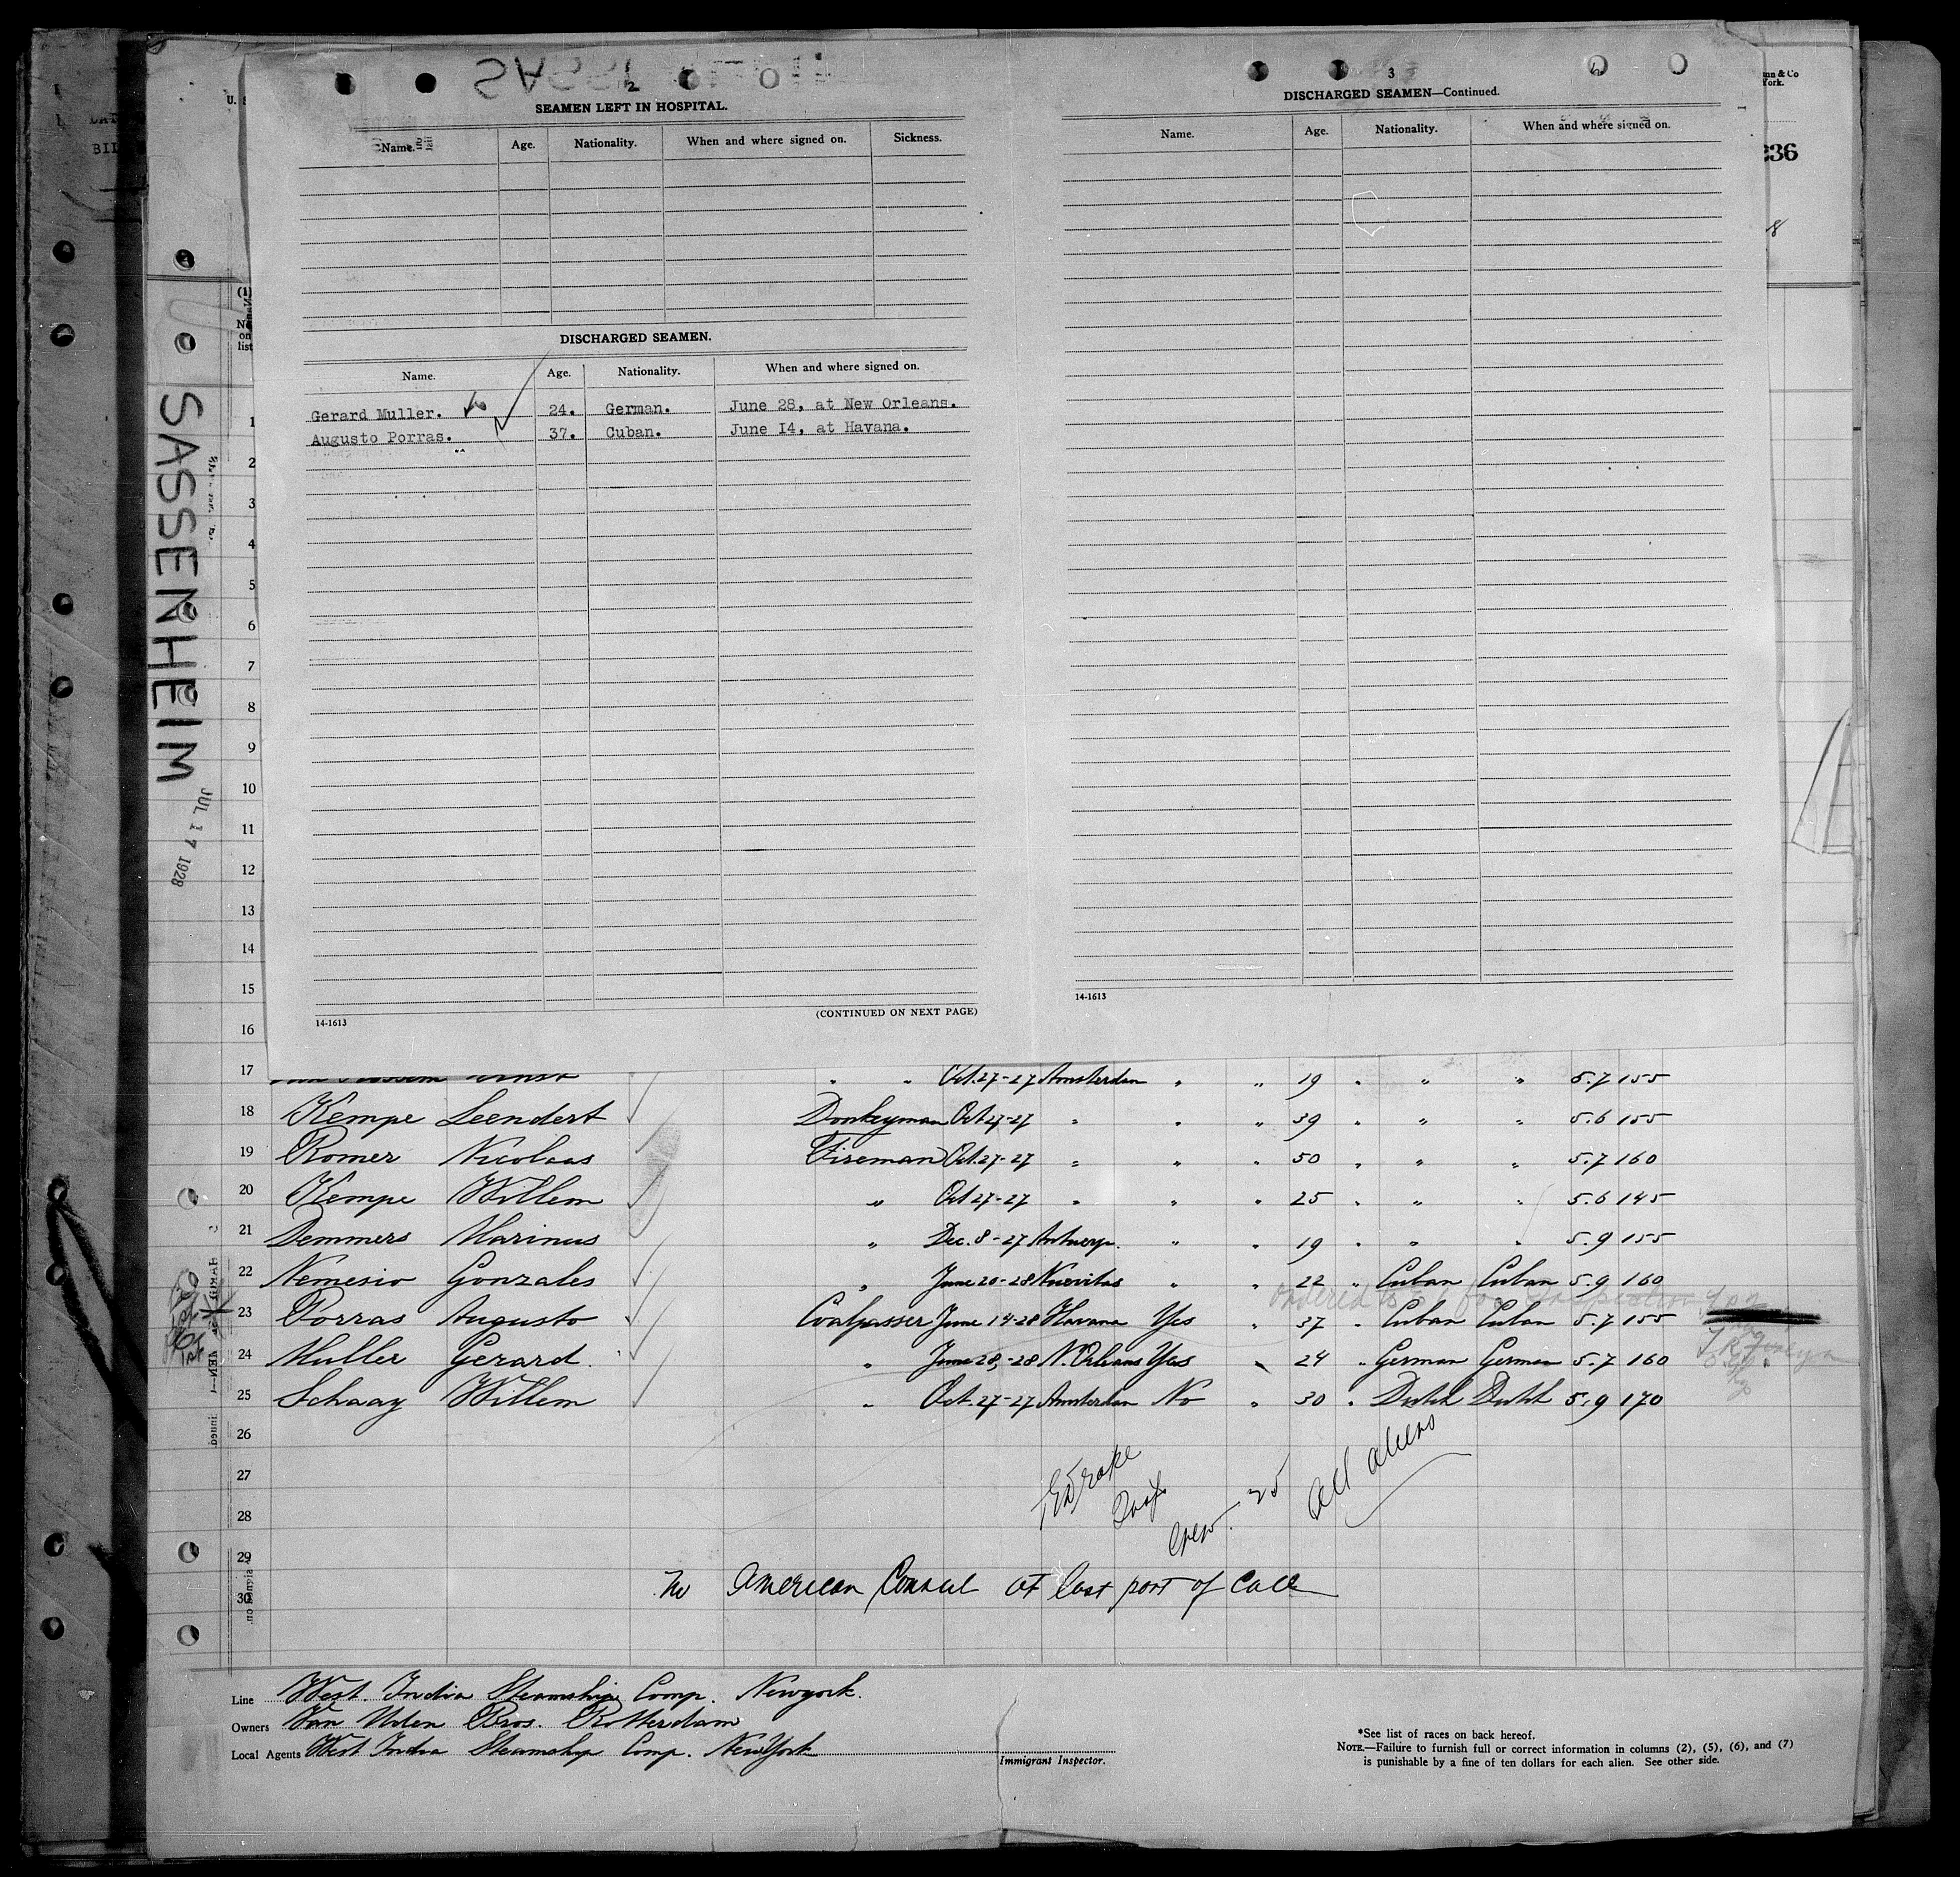 2
SEAMEN LEFT IN HOSPITAL.
Name. Age. Nationality. When and where signed on. Sickness.
DISCHARGED SEAMEN.
Name. Age. Nationality. When and where signed on.
Gerard Muller. 24. German. June 28, at New Orleans.
Augusto Porras. 37. Cuban. June I4, at Havana.
14-1613
(CONTINUED ON NEXT PAGE)
3
DISCHARGED SEAMEN—Continued.
Name. Age. Nationality. When and where signed on.
14-1613
& Co
York.
236
U. S
(1)
No
on
list
SASSENHEIM
JUL 17 1928
1
2
3
4
5
6
7
8
9
10
11
12
13
14
15
16
17 " " Oct. 27-27 Amsterdam " " 19 " " " 5.7 155
18 Kempe Leendert Donkeyman Oct 27-27 " " " 39 " " " 5.6 155
19 Romer Nicolaas Fireman Oct. 27-27 " " " 50 " " " 5.7 160
20 Kempe Willem " Oct 27-27 " " " 25 " " " 5.6 145
21 Demmers Marinus " Dec. 8-27 Antwerp. " " 19 " " " 5.9 155
22 Nemesio Gonzales " June 20-28 Nuevitas " " 22 " Cuban Cuban 5.9 160
23 Porras Augusto Coalpasser June 14-28 Havana Yes " 37 " Cuban Cuban 5.7 155
24 Muller Gerard. " June 28,-28 N. Orleans Yes " 24 " German German 5.7 160
25 Schaay Willem " Oct. 27-27 Amsterdam No " 30 " Dutch Dutch 5.9 170
26
27
28
29
30
Crew. 25
All aliens
No American Consul at last port of call
Line West India Steamship Comp. Newyork.
Owners Van Uden Bros. Rotterdam
Local Agents West India Steamship Comp. New York
Immigrant Inspector.
*See list of races on back hereof.
NOTE.—Failure to furnish full or correct information in columns (2), (5), (6), and (7)
is punishable by a fine of ten dollars for each alien. See other side.